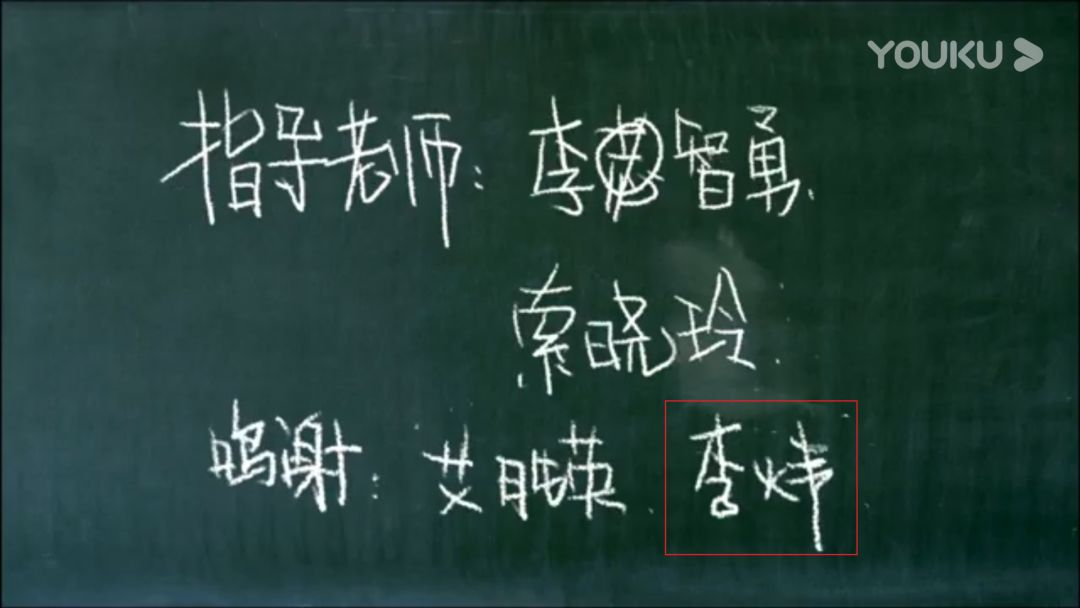 YOUKU
指导老师：李智勇
索晓玲
鸣谢：艾 李炜